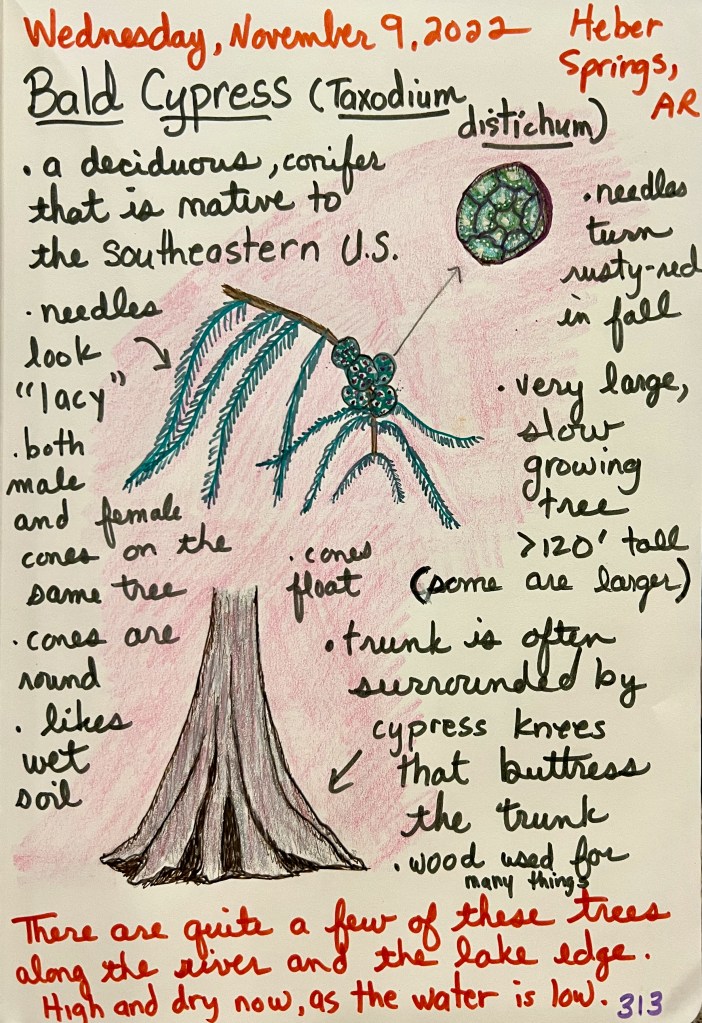 Wednesday, November 9, 2022
Heber
Springs,
AR
Bald Cypress (Taxodium
distichum)
. a deciduous, conifer
that is native to
the southeastern U.S.
. needles
turn
rusty-red
in fall
. needles
look
"lacy"
. both
male
and female
cones on the
same tree
. cones are
round
. likes
wet
soil
. cones
float
. very large,
slow
growing
tree
>120' tall
(some are larger)
. trunk is often
surrounded by
cypress knees
that buttress
the trunk
. wood used for
many things
There are quite a few of these trees
along the river and the lake edge.
High and dry now, as the water is low.
313